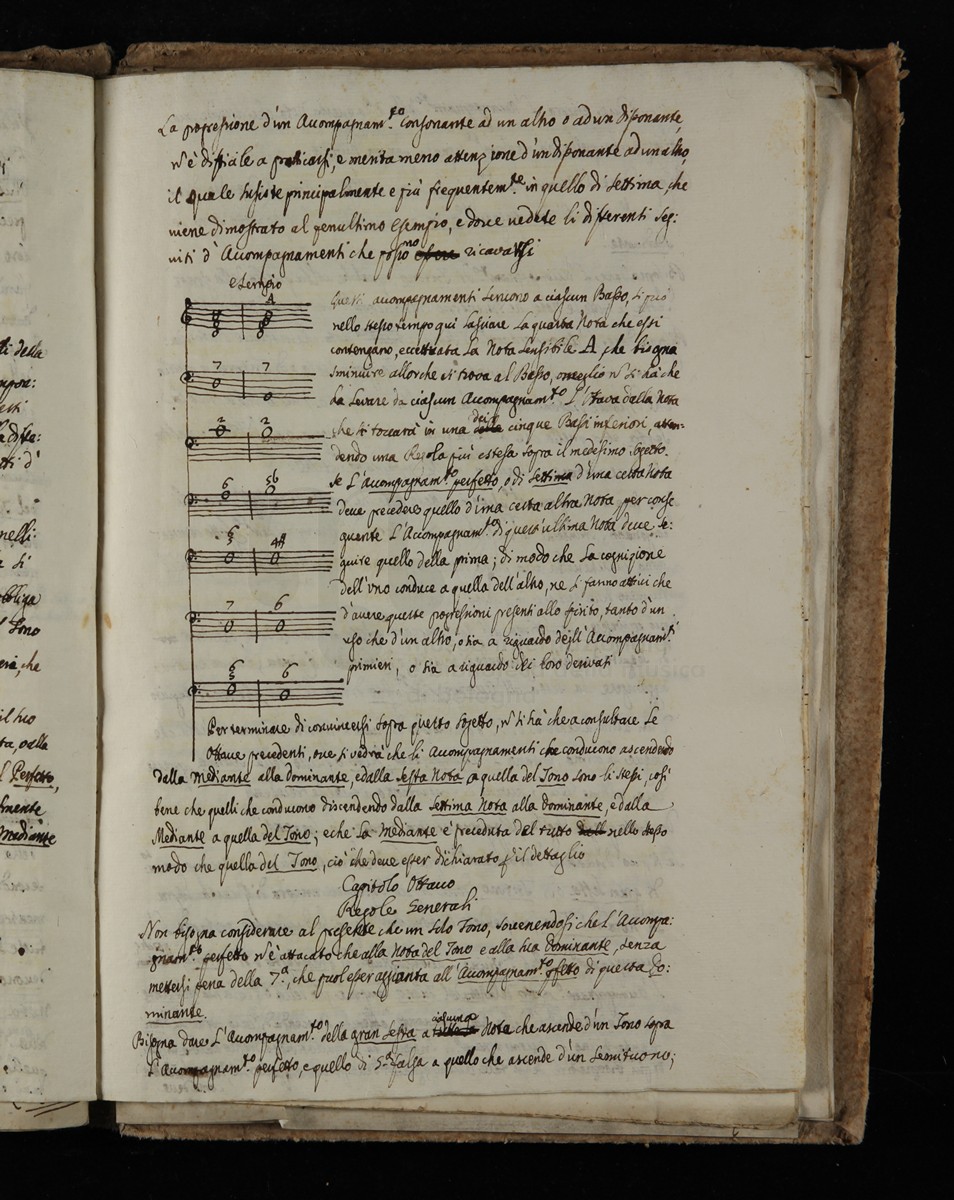 La progressione d'un Accompagnam.to consonante ad un altro o ad un dissonante,
n'è difficile a praticarsi, e merita meno attenzione d'un dissonante ad un altro,
il quale susiste principalmente e più frequentem.te in quello di settima che
viene dimostrato al penultimo Esempio, e dove vedete li differenti seg:
viti d'Accompagnamenti che possono ricavarsi
Esempio
Questi accompagnamenti servono a ciascun Basso, si può
nello stesso tempo qui lasciare La quarta Nota che essi
contengano, eccettuata La Nota Sensibile A che bisogna
sminuire allorche si trova al Basso, o meglio n'si hà che
da levare da ciascun Accompagnam.to L'Ottava dalla Nota
che si toccarà in una dei cinque Bassi inferiori, atten-
dendo una Regola più estesa sopra il medesimo sogetto.
se L'accompagnam.to perfetto, o di settima d'una certa Nota
deve precedere quello d'una certa altra Nota, per conse
guente L'Accompagnam.to di quest'ultima Nota deve se:
guire quello della prima; di modo che La cognizione
dell'uno conduce a quella dell'altro, ne si fanno attici che
d'avere queste progressioni presenti allo spirito, tanto d'un
uso che d'un altro, o sia a riguardo degli Accompagnam.ti
primieri, o sia a riguardo dei loro derivati
A
7 7
2
6 5b
6 5 4#
7 6
6 5 6
Per terminare di convincersi sopra questo sogetto, n'si hà che a consultare Le
Ottave precedenti, ove si vedrà che li Accompagnamenti che conducono ascendendo
dalla mediante alla dominante, e dalla sesta Nota a quella del Tono sono li stessi, così
bene che quelli che conducono discendendo dalla settima Nota alla Dominante, e dalla
Mediante a quella del Tono; e che La mediante è preceduta del tutto nello stesso
modo che quella del Tono, ciò che deve esser dichiarato p il dettaglio
Capitolo Ottavo
Regole Generali
Non bisogna considerare al presente che un solo Tono, sovenendosi che L'Accompa:
gnam.to perfetto n'è attacato che alla Nota del Tono e alla sua Dominante, senza
mettersi pena della 7.a, che puol esser aggiunta all'Accompagnam.to pfetto di questa Do:
minante.
Bisogna dare L'Accompagnam.to della gran sesta a ciascuna Nota che ascende d'un Tono sopra
L'Accompagnam.to perfetto, e quello di 5.a falsa a quello che ascende d'un Semituono;